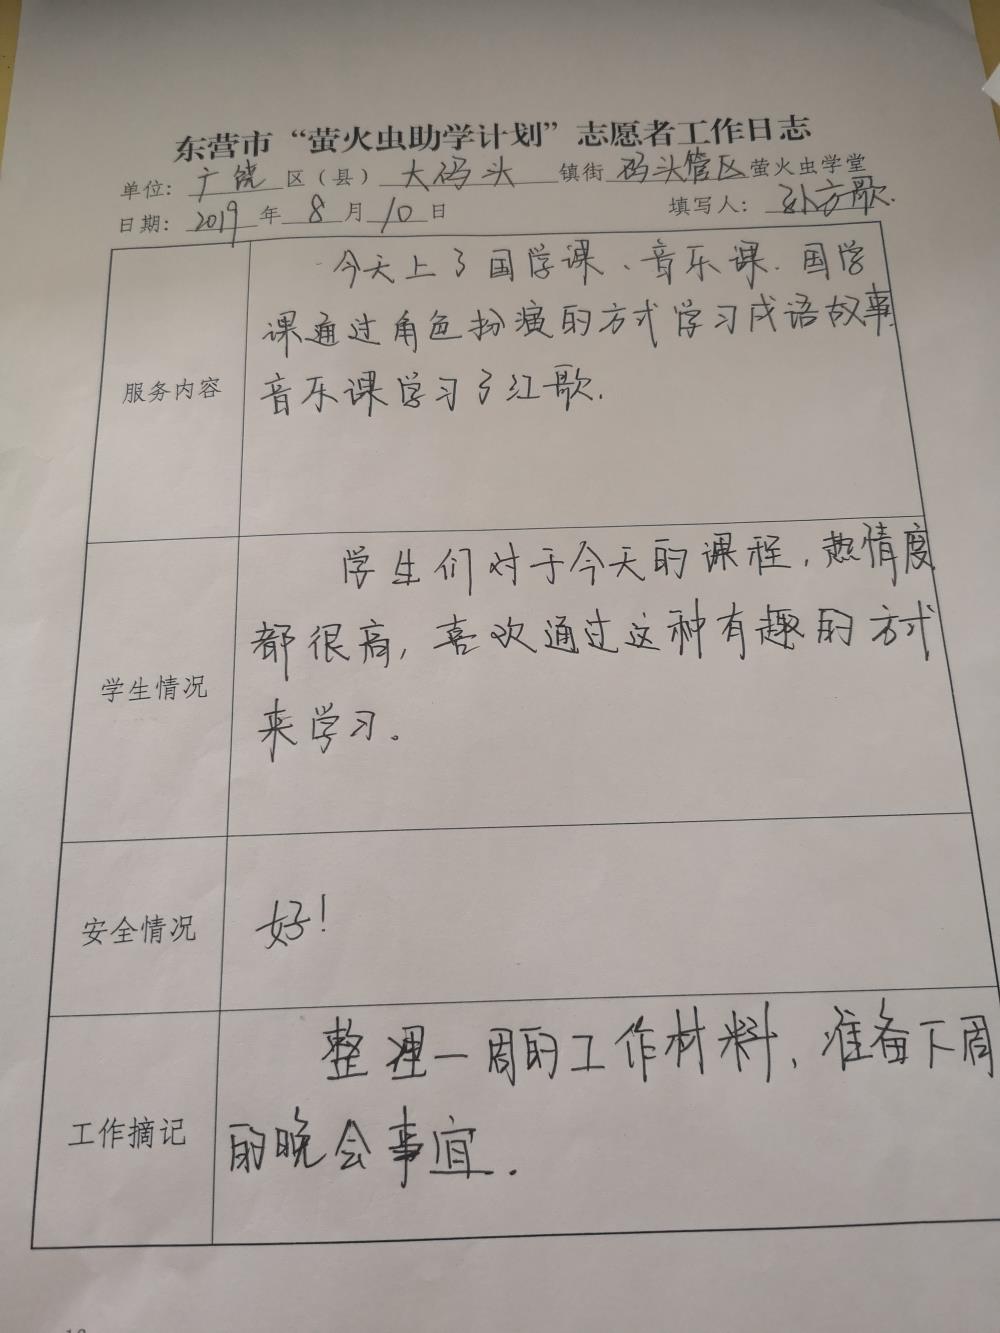 东营市“萤火虫助学计划”志愿者工作日志
单位：广饶区（县）大码头镇街码头管区萤火虫学堂
日期：2019年8月10日 填写人：孙方歌.
服务内容
今天上了国学课、音乐课.国学
课通过角色扮演的方式学习成语故事
音乐课学习了红歌.
学生情况
学生们对于今天的课程，热情度
都很高，喜欢通过这种有趣的方式
来学习。
安全情况
好！
工作摘记
整理一周的工作材料、准备下周
的晚会事宜.